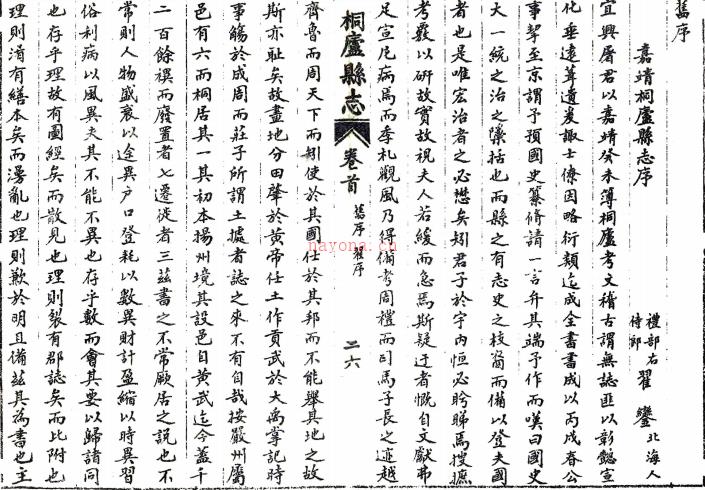 舊序
嘉靖桐廬縣志序
禮部右侍郎 翟鑾 北海人
宜興屠君以嘉靖癸未簿桐廬考文稽古謂無誌匪以彰懿宣
化垂遠葺遺爰諏士僚因略衍類迄成全書書成以丙戌春公
事挈至京謂予預國史纂脩請一言弁其端予作而嘆曰國史
大一統之治之檃括也而縣之有志史之枝裔而備以登夫國
者也是唯宏治者之必懋矣矧君子於宇內恒必盻睇焉搜攟
考覈以研故實故視夫人若緩而急焉斯疑迂者慨自文獻弗
足宣尼病焉而季札觀風乃得備考周禮而司馬子長之遊越
桐廬縣志 卷首 舊序 翟序 二六
齊魯而周天下而矧使於其國仕於其邦而不能舉其地之故
斯亦耻矣故畫地分田肇於黃帝任土作貢武於大禹掌記時
事觴於成周而莊子所謂土據者誌之來不有自哉按嚴州屬
邑有六而桐居其一其初本揚州境其設邑自黃武迄今蓋千
二百餘禩而廢置者七遷徙者三茲書之不常厥居之說也不
常則人物盛衰以途異戶口登耗以數異財計盈縮以時異習
俗利病以風異夫其不能不異也存乎數而會其要以歸諸同
也存乎理故有圖經矣而散見也理則裂有郡誌矣而比附也
理則淆有繕本矣而漫亂也理則歉於明且備茲其為書也主
nayona.cn